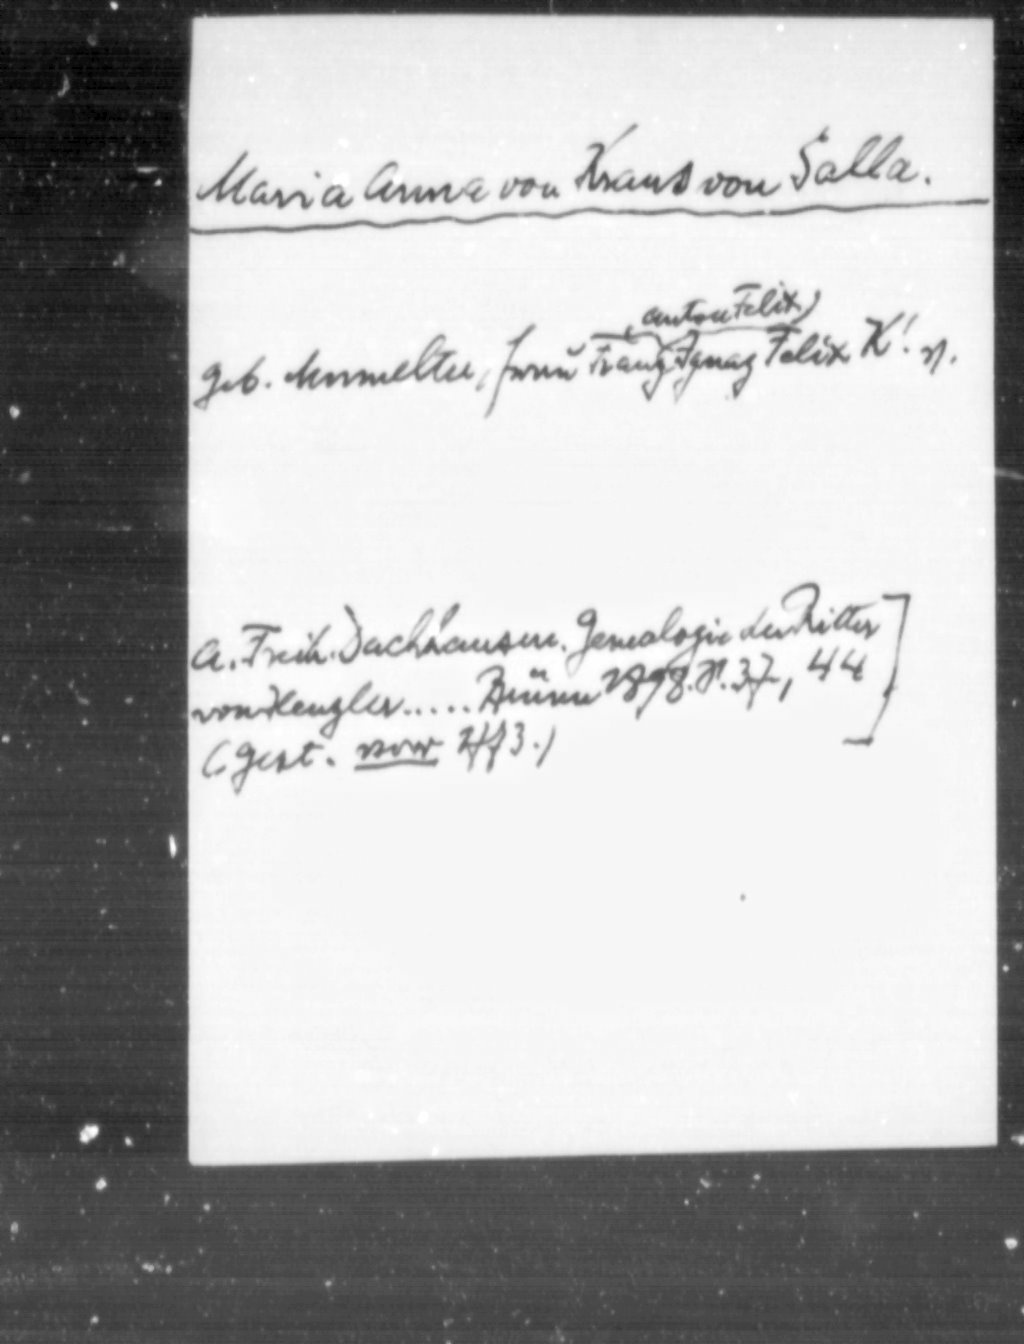 Maria Anna von Kraus von Salla.
(Anton Felix)
geb. Mumelter, Franz Ignaz Felix K! v.
A. Freih. Dachhausen. Genealogie der Ritter
von Henzler..... Brünn 1898. S. 37, 44
(gest. vor 1773.)